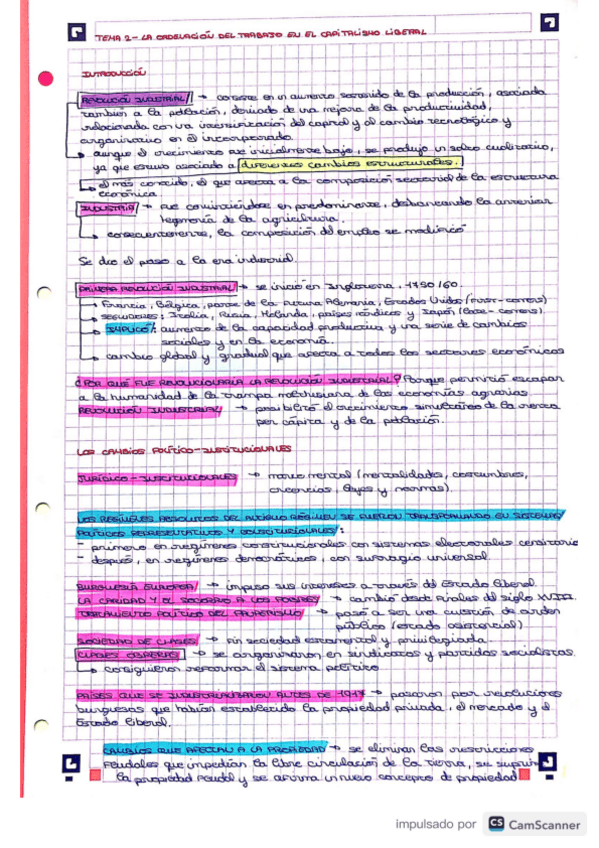 TEMA 2 - LA ORDENACIÓN DEL TRABAJO EN EL CAPITALISMO LIBERAL
INTRODUCCIÓN
REVOLUCIÓN INDUSTRIAL → consiste en un aumento sostenido de la producción, asociada
también a la población, derivado de una mejora de la productividad,
relacionada con la intensificación del capital y al cambio tecnológico y
organizativo en él incorporado.
aunque el crecimiento fue inicialmente bajo, se produjo un salto cualitativo,
ya que estuvo asociado a diferentes cambios estructurales.
el más conocido, el que afecta a la composición sectorial de la estructura
económica.
INDUSTRIA → fue convirtiéndose en predominante, desbancando la anterior
hegemonía de la agricultura.
consecuentemente, la composición del empleo se modificó
Se dio el paso a la era industrial.
PRIMERA REVOLUCIÓN INDUSTRIAL → se inició en Inglaterra, 1750/60.
Francia, Bélgica, parte de la futura Alemania, Estados Unidos (first-comers)
SEGUIDORES: Italia, Rusia, Holanda, países nórdicos y Japón (late-comers).
IMPLICÓ: aumento de la capacidad productiva y una serie de cambios
sociales y en la economía.
cambio global y gradual que afecta a todos los sectores económicos
¿POR QUÉ FUE REVOLUCIONARIA LA REVOLUCIÓN INDUSTRIAL? Porque permitió escapar
a la humanidad de la trampa malthusiana de las economías agrarias.
REVOLUCIÓN INDUSTRIAL → posibilitó el crecimiento simultáneo de la renta
per cápita y de la población.
LOS CAMBIOS POLÍTICO-INSTITUCIONALES
JURÍDICO-INSTITUCIONALES → marco mental (mentalidades, costumbres,
creencias, leyes y normas).
LOS REGÍMENES ABSOLUTOS DEL ANTIGUO RÉGIMEN SE FUERON TRANSFORMANDO EN SISTEMAS
POLÍTICOS REPRESENTATIVOS Y CONSTITUCIONALES:
- primero en regímenes constitucionales con sistemas electorales censitario
- después, en regímenes democráticos, con sufragio universal.
BURGUESÍA EUROPEA → impuso sus intereses a través del Estado liberal.
LA CARIDAD Y EL SOCORRO A LOS POBRES → cambió desde finales del siglo XVIII.
TRATAMIENTO POLÍTICO DEL PAUPERISMO → pasó a ser una cuestión de orden
público (estado asistencial)
SOCIEDAD DE CLASES → fin sociedad estamental y privilegiada.
CLASES OBRERAS → se organizaron en sindicatos y partidos socialistas.
consiguieron reformar el sistema político
PAÍSES QUE SE INDUSTRIALIZARON ANTES DE 1917 → pasaron por revoluciones
burguesas que habían establecido la propiedad privada, el mercado y el
Estado liberal.
CAMBIOS QUE AFECTAN A LA PROPIEDAD → se eliminan las restricciones
feudales que impedían la libre circulación de la tierra, se suprim
la propiedad feudal y se afirma un nuevo concepto de propiedad
impulsado por CS CamScanner